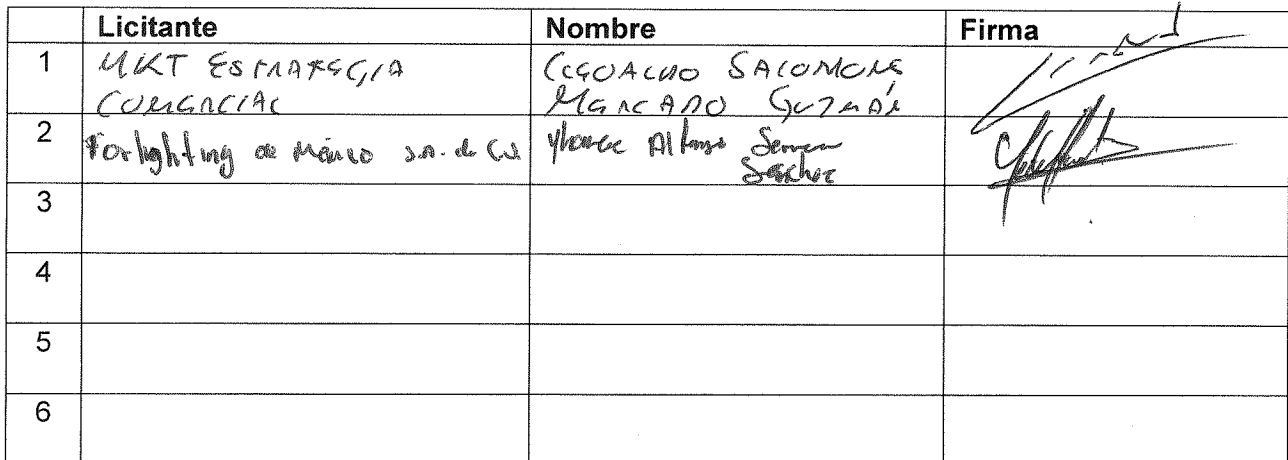 Licitante Nombre Firma
1 MKT ESTRATEGIA
COMERCIAL
SALOMON
MERCADO GUZMÁN
2 Forlighting de México S.A. de C.V. Alfonso
3
4
5
6